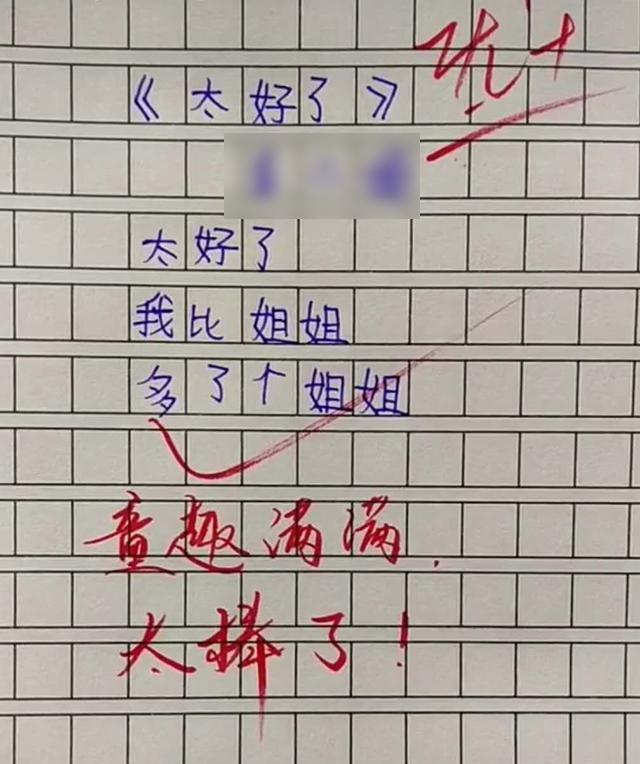 《太好了》
优+
太好了
我比姐姐
多了个姐姐
童趣满满.
太棒了!